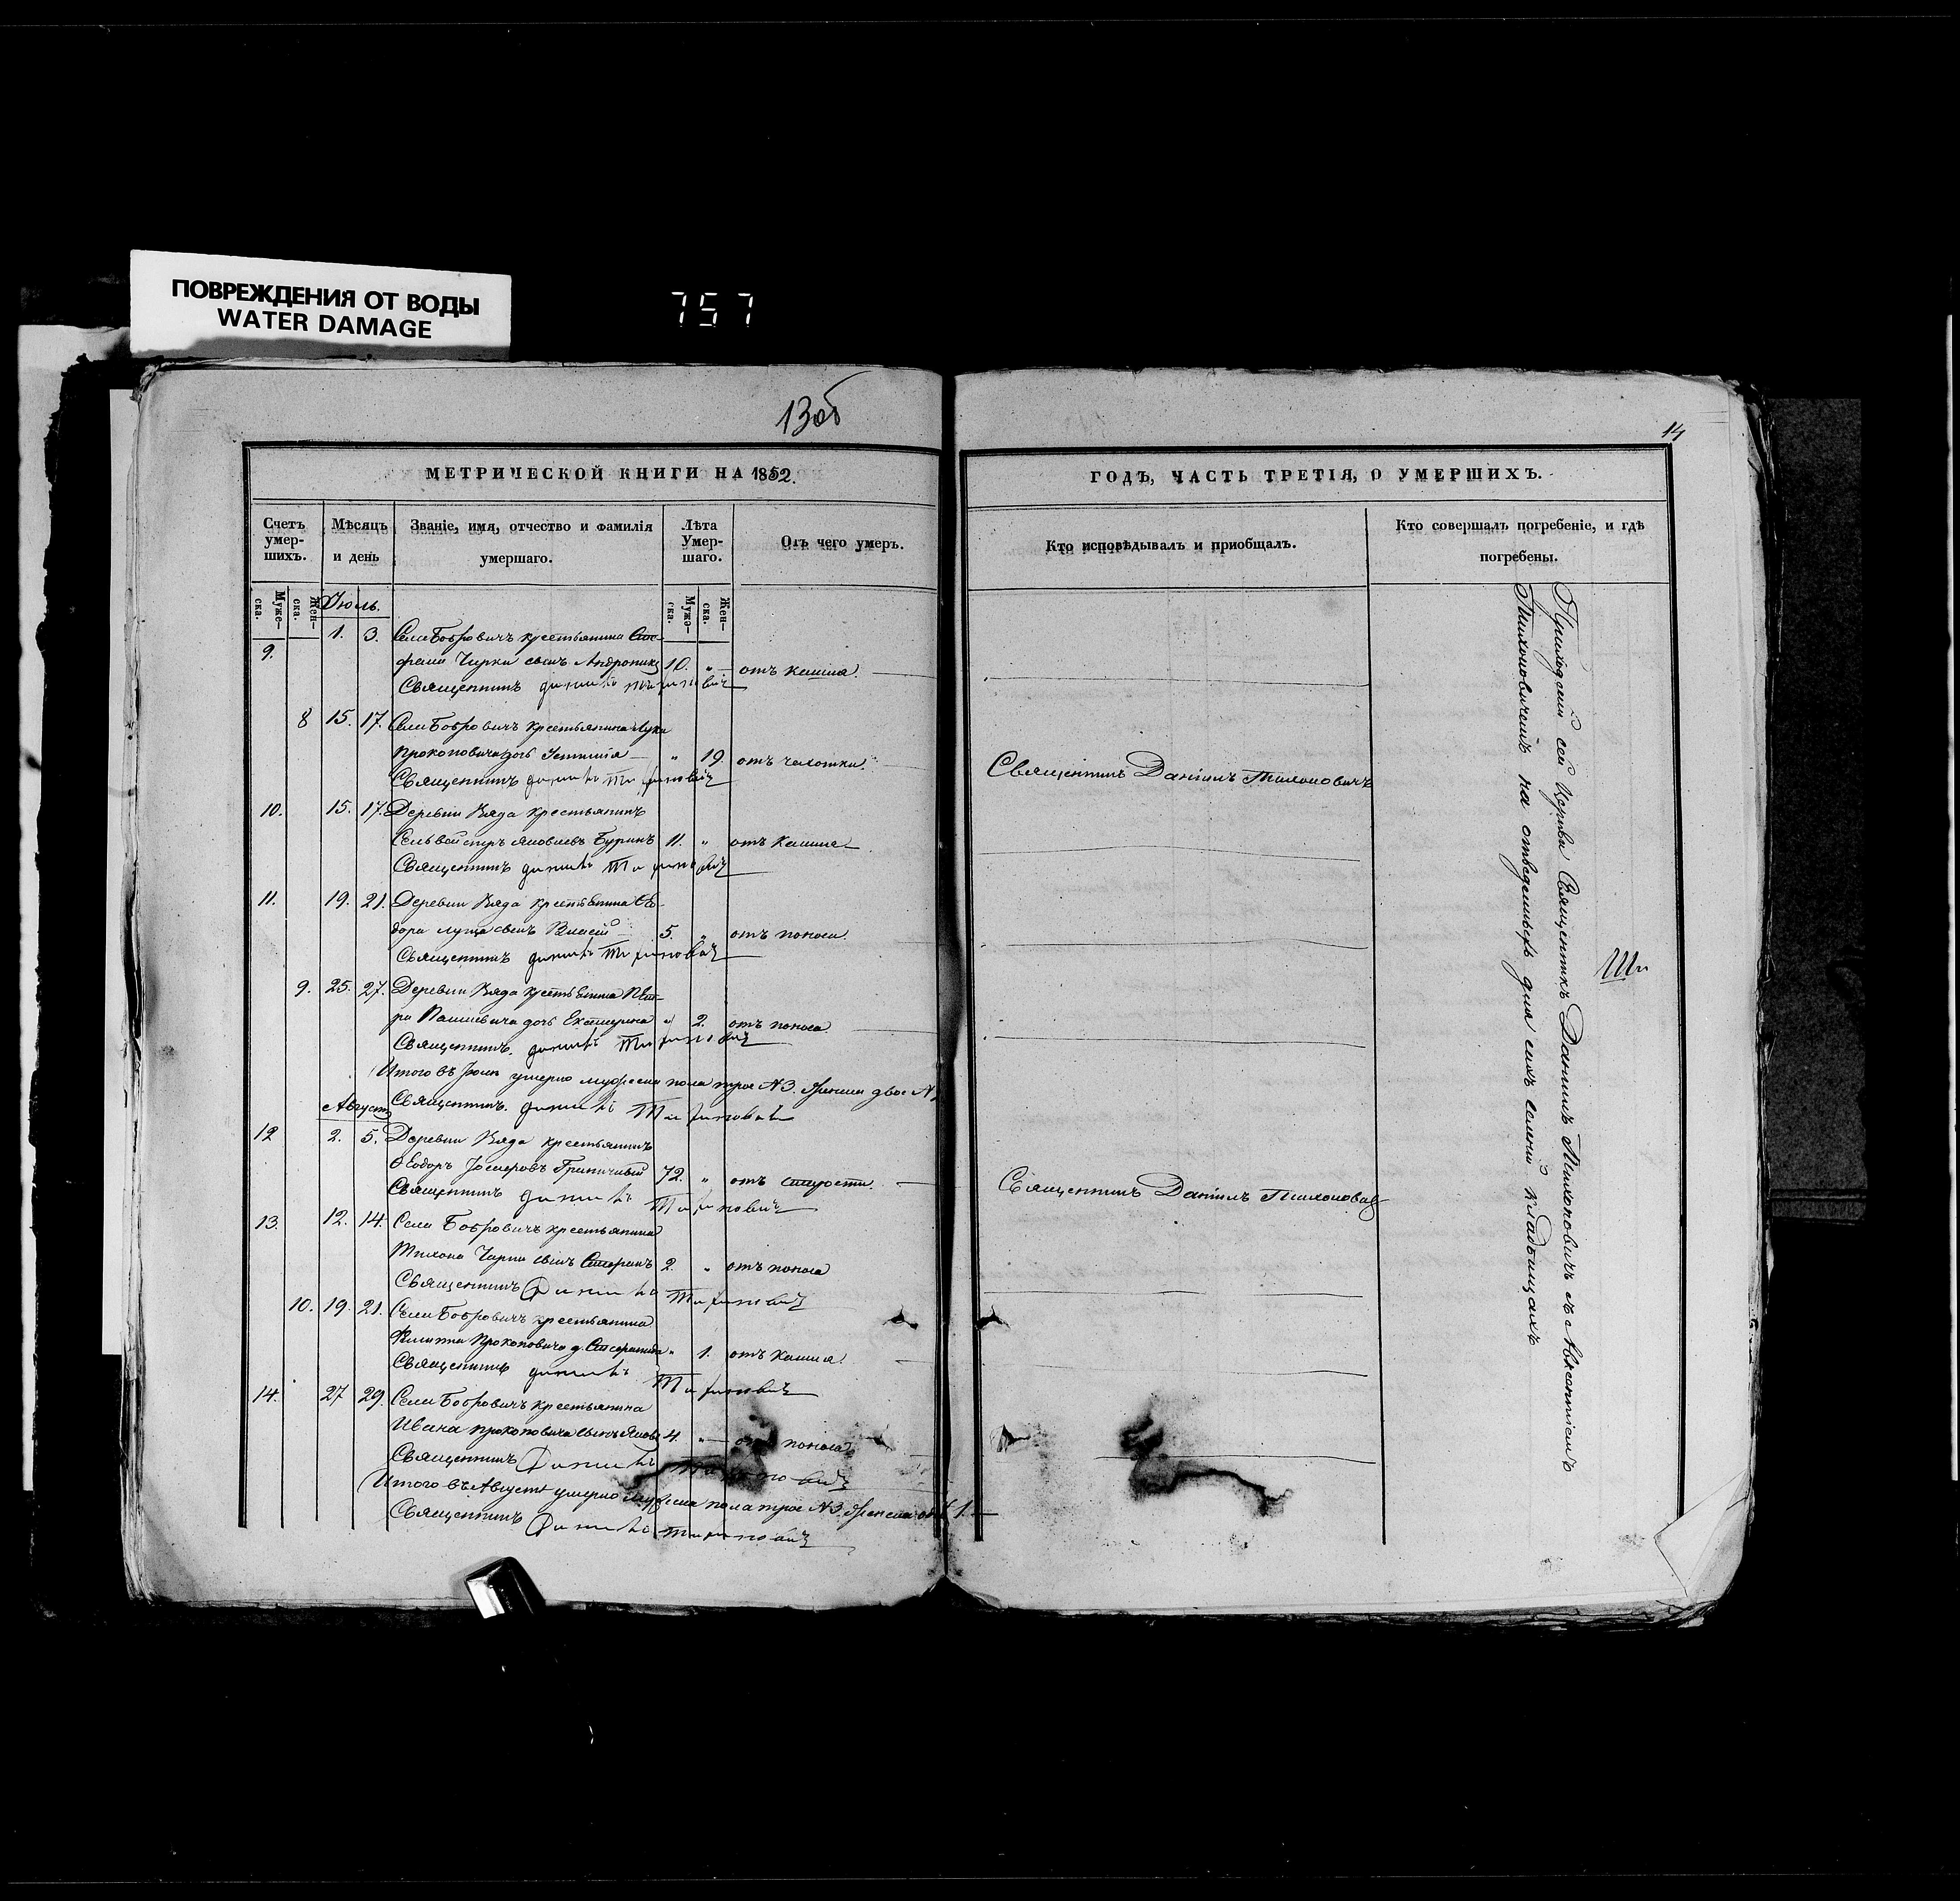 ПОВРЕЖДЕНИЯ ОТ ВОДЫ
WATER DAMAGE
757
13об
14
МЕТРИЧЕСКОЙ КНИГИ НА 1852.
ГОДЪ, ЧАСТЬ ТРЕТІЯ, О УМЕРШИХЪ.
Счетъ умер-шихъ.
Мѣсяцъ и день
Званіе, имя, отчество и фамилія умершаго.
Лѣта Умер-шаго.
Отъ чего умеръ.
Кто исповѣдывалъ и приобщалъ.
Кто совершалъ погребеніе, и гдѣ погребены.
Муже-ска.
Жен-ска.
Муже-ска.
Жен-ска.
Іюль.
9. 1. 3. Села Бобровичъ крестьянина Сте-
фана Чирки сынъ Андроникъ 10. „ отъ кашля.
Священникъ Данилъ Тихоновичъ
8 15. 17. Села Бобровичъ крестьянина Луки
Прокоповича дочь Устинія „ 19. отъ чахотки
Священникъ Данилъ Тихоновичъ
Священникъ Даніилъ Тихоновичъ
10. 15. 17. Деревни Вяда крестьянинъ
Сельвестръ Яковлевъ Буринъ 11. „ отъ кашля
Священникъ Данилъ Тихоновичъ
11. 19. 21. Деревни Вяда крестьянина Ѳео-
дора Луца сынъ Власій 5. „ отъ поноса.
Священникъ Данилъ Тихоновичъ
9. 25. 27. Деревни Вяда крестьянина Пет-
ра дочь Екатерина „ 2. отъ поноса
Священникъ Данилъ Тихоновичъ
Итого въ Іюлѣ умерло мужеска пола трое №3. женска двое №
Священникъ Данилъ Тихоновичъ
Августъ
12 2. 5. Деревни Вяда крестьянинъ
Ѳеодоръ 72. „ отъ старости.
Священникъ Данилъ Тихоновичъ
Священникъ Даніилъ Тихоновичъ
13. 12. 14. Села Бобровичъ крестьянина
Тихона Чирки сынъ 2. „ отъ поноса
Священникъ Данилъ Тихоновичъ
10. 19. 21. Села Бобровичъ крестьянина
Филиппа Прокоповича д. „ 1. отъ кашля.
Священникъ Данилъ Тихоновичъ
14. 27 29. Села Бобровичъ крестьянина
Ивана Прокоповича сынъ 4. „ отъ поноса
Священникъ Данилъ Тихоновичъ
Итого въ Августѣ умерло мужеска пола трое №3. женска 1.
Священникъ Данилъ Тихоновичъ
Приходской сей Церкви Священникъ Даніилъ Тихоновичъ съ
Тихоновичемъ на отведенныхъ для сихъ селеній кладбищахъ